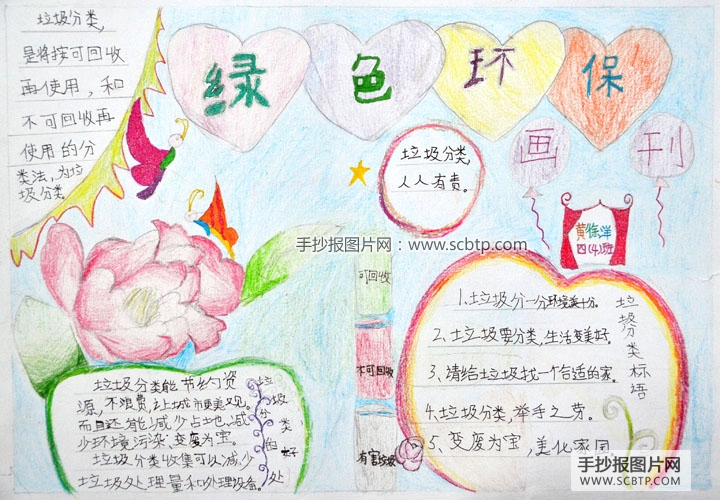 垃圾分类,
是将按可回收
再使用,和
不可回收再
使用的分
类法,为垃
圾分类。
绿色环保
画刊
垃圾分类,
人人有责。
黄徐洋
四(4)班
手抄报图片网:www.scbtp.com
可回收
不可回收
有害垃圾
垃圾分类能节约资
源,不浪费,让城市更美观。
而且还能减少占地,减
少环境污染,变废为宝。
垃圾分类收集可以减少
垃圾处理量和处理设备。
垃圾分类的好处
垃圾分类标语
1、垃圾分一分环境美十分。
2、垃圾要分类,生活变美好。
3、请给垃圾找一个合适的家。
4、垃圾分类,举手之劳。
5、变废为宝,美化家园
手抄报图片网
SCBTP.COM